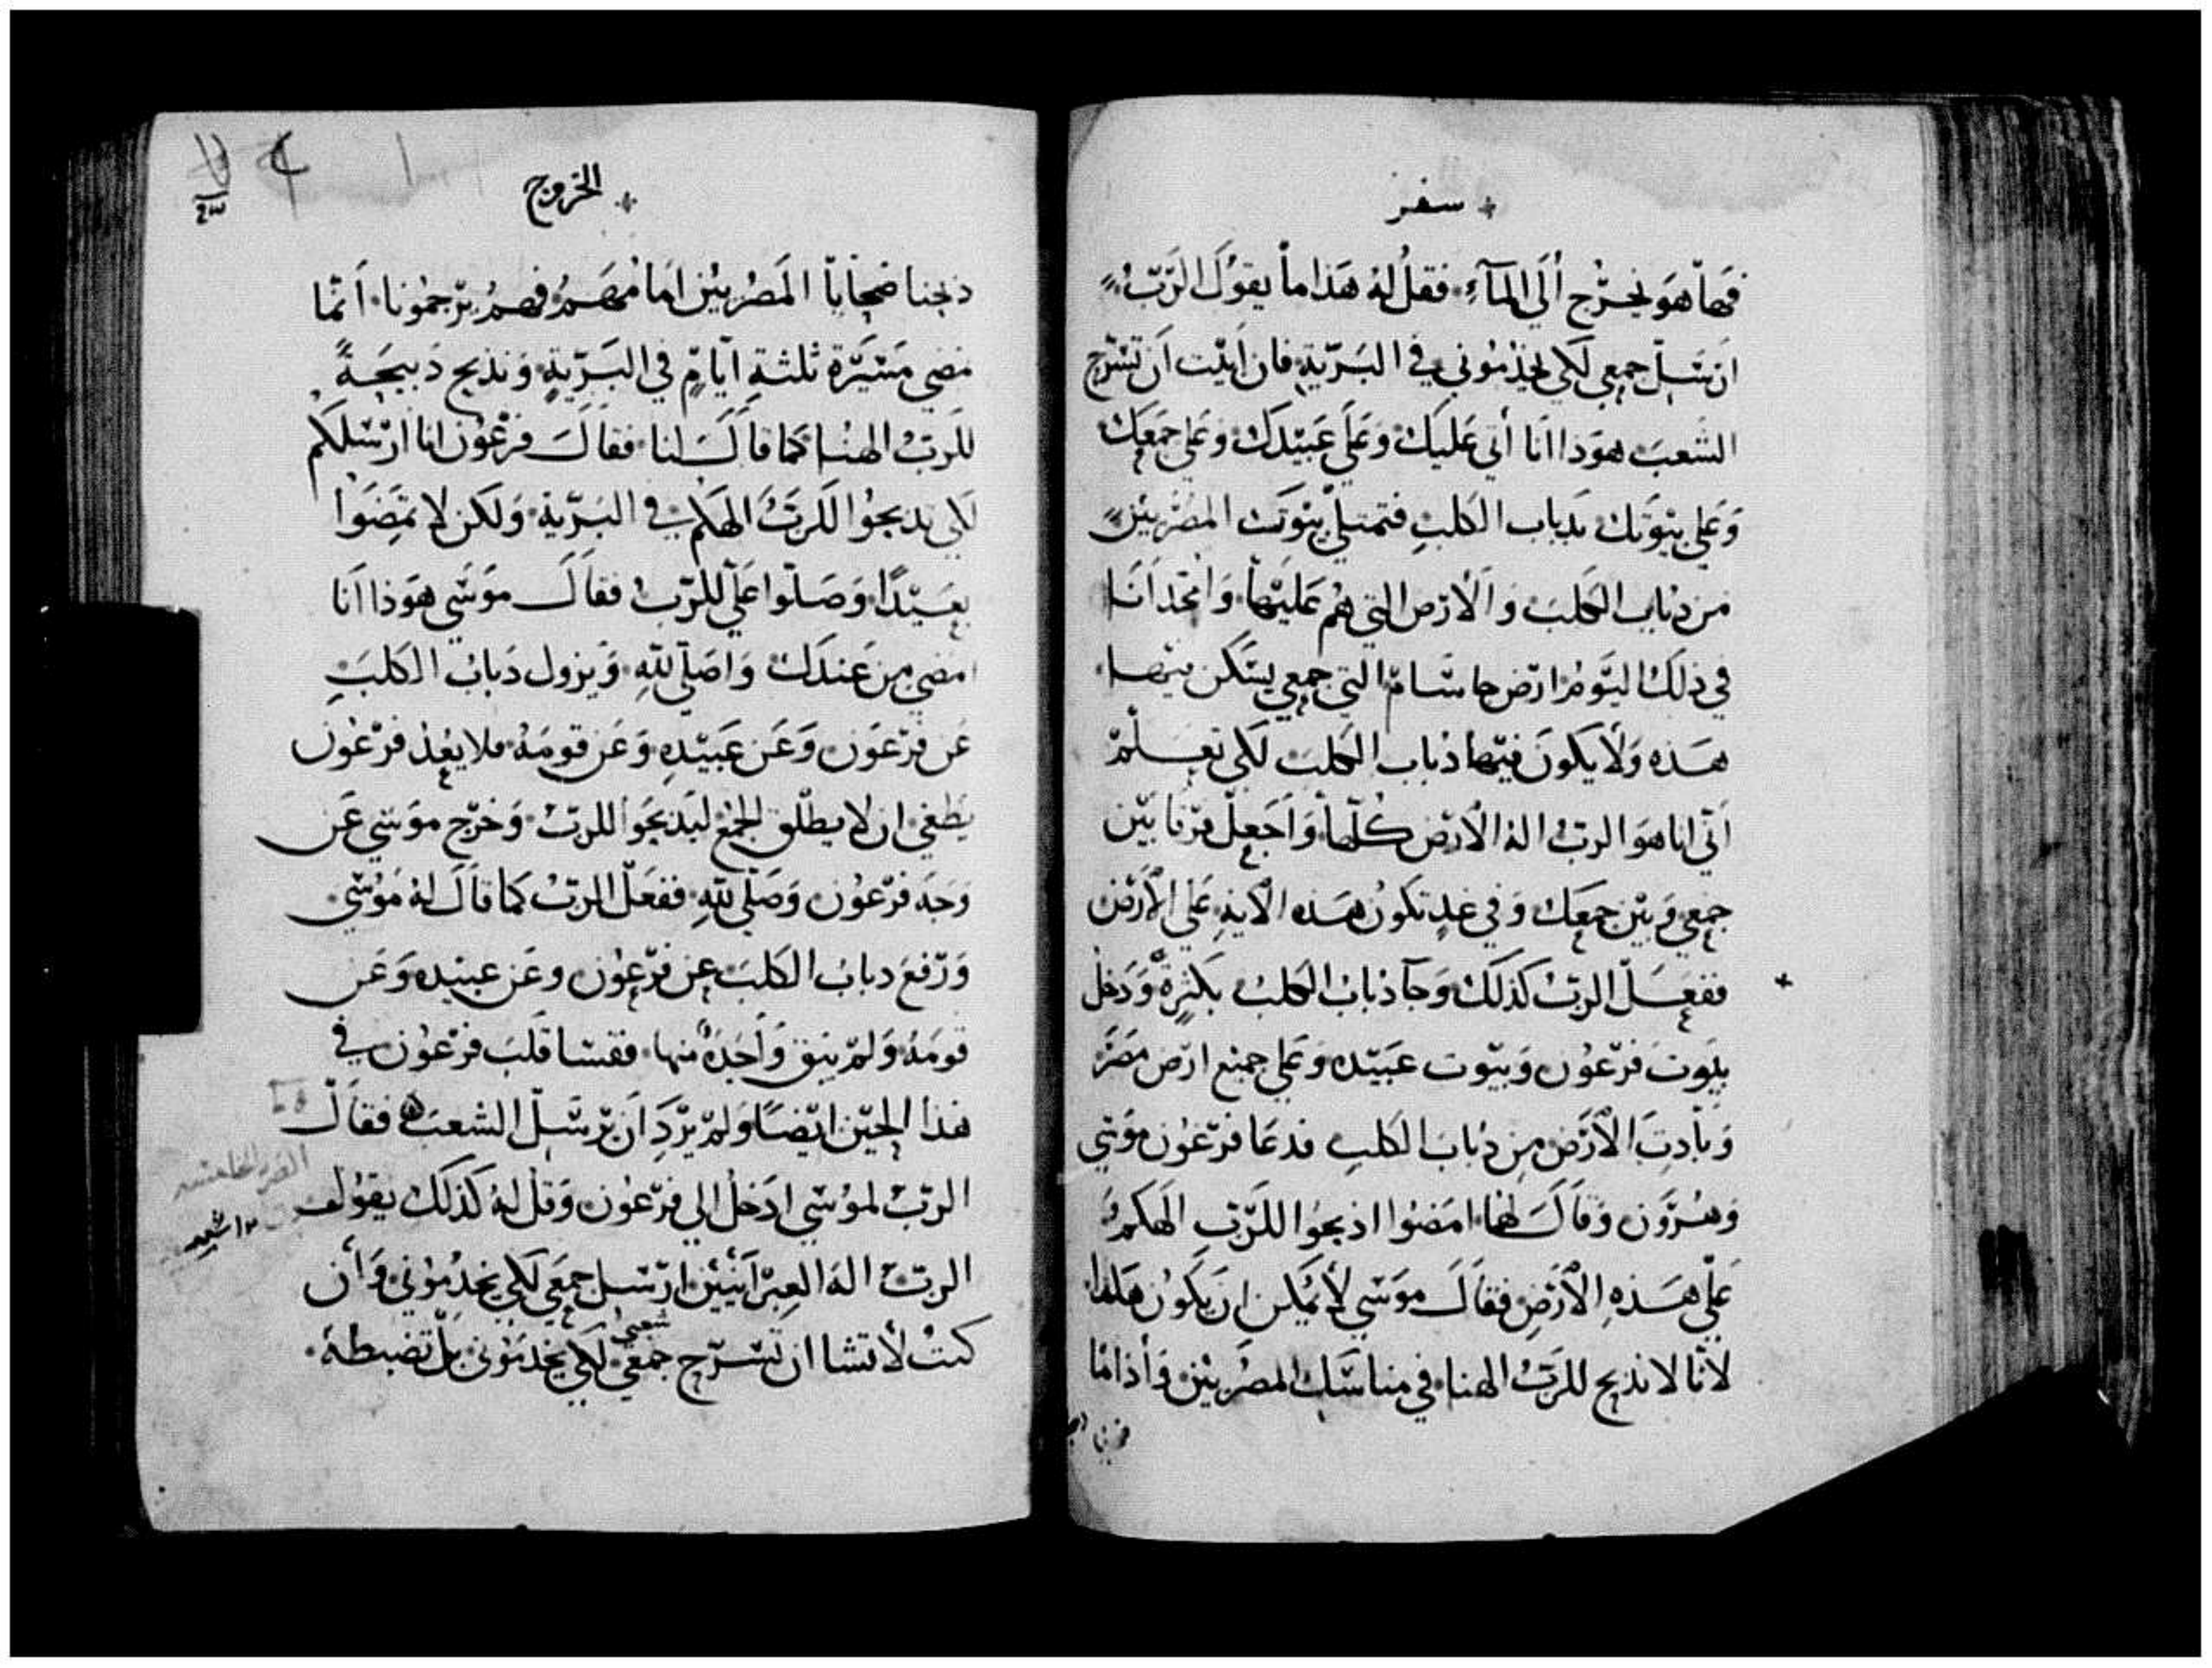 سفر
فها هو يخرج الي المآء فقل له هذا ما يقول الرب
ارسل جمعي لكي يخدموني في البرية فان ابيت ان تسرح
الشعب هوذا انا أتي عليك وعلي عبيدك وعلي جمعك
وعلي بيوتك بدباب الكلب فتمتلي بيوت المصريين
من ذباب الكلب والارض التي هم عليها وامجد انا
في ذلك اليوم ارض جاسام التي جمعي يسكن فيها
هذه ولا يكون فيها ذباب الكلب لكي تعلم
اني انا هو الرب اله الارض كلها واجعل فرقا بين
جمعي وبين جمعك وفي غد تكون هذه الاية علي الارض
ففعل الرب كذلك وجآ ذباب الكلب بكثرة ودخل
بيوت فرعون وبيوت عبيده وعلي جميع ارض مصر
وبادت الارض من ذباب الكلب فدعا فرعون موسي
وهرون وقال لهما امضوا اذبحوا للرب الهكم
علي هذه الارض فقال موسي لا يمكن ان يكون هكذا
لانا لا نذبح للرب الهنا في مناسك المصريين واذا ما
الخروج
ذبحنا ضحايا المصريين امامهم فهم يرجمونا انما
نمضي مسيرة ثلثة ايام في البرية ونذبح ذبيحة
للرب الهنا كما قال لنا فقال فرعون انا ارسلكم
لكي تدبحوا للرب الهكم في البرية ولكن لا تمضوا
بعيدا وصلوا علي للرب فقال موسي هوذا انا
امضي من عندك واصلي لله ويزول دباب الكلب
عن فرعون وعن عبيده وعن قومه فلا يعد فرعون
يطغي ان لا يطلق الجمع ليدبحوا للرب وخرج موسي عن
وجه فرعون وصلي لله ففعل الرب كما قال له موسي
ورفع دباب الكلب عن فرعون وعن عبيده وعن
قومه ولم يبق واحدة منها فقسا قلب فرعون في
هذا الحين ايضا ولم يرد ان يرسل الشعب فقال
الرب لموسي ادخل الي فرعون وقل له كذلك يقول
الرب اله العبرانيين ارسل جمعي لكي يخدموني وأن
كنت لا تشا ان تسرح جمعي شعبي لكي يخدموني بل تضبطه